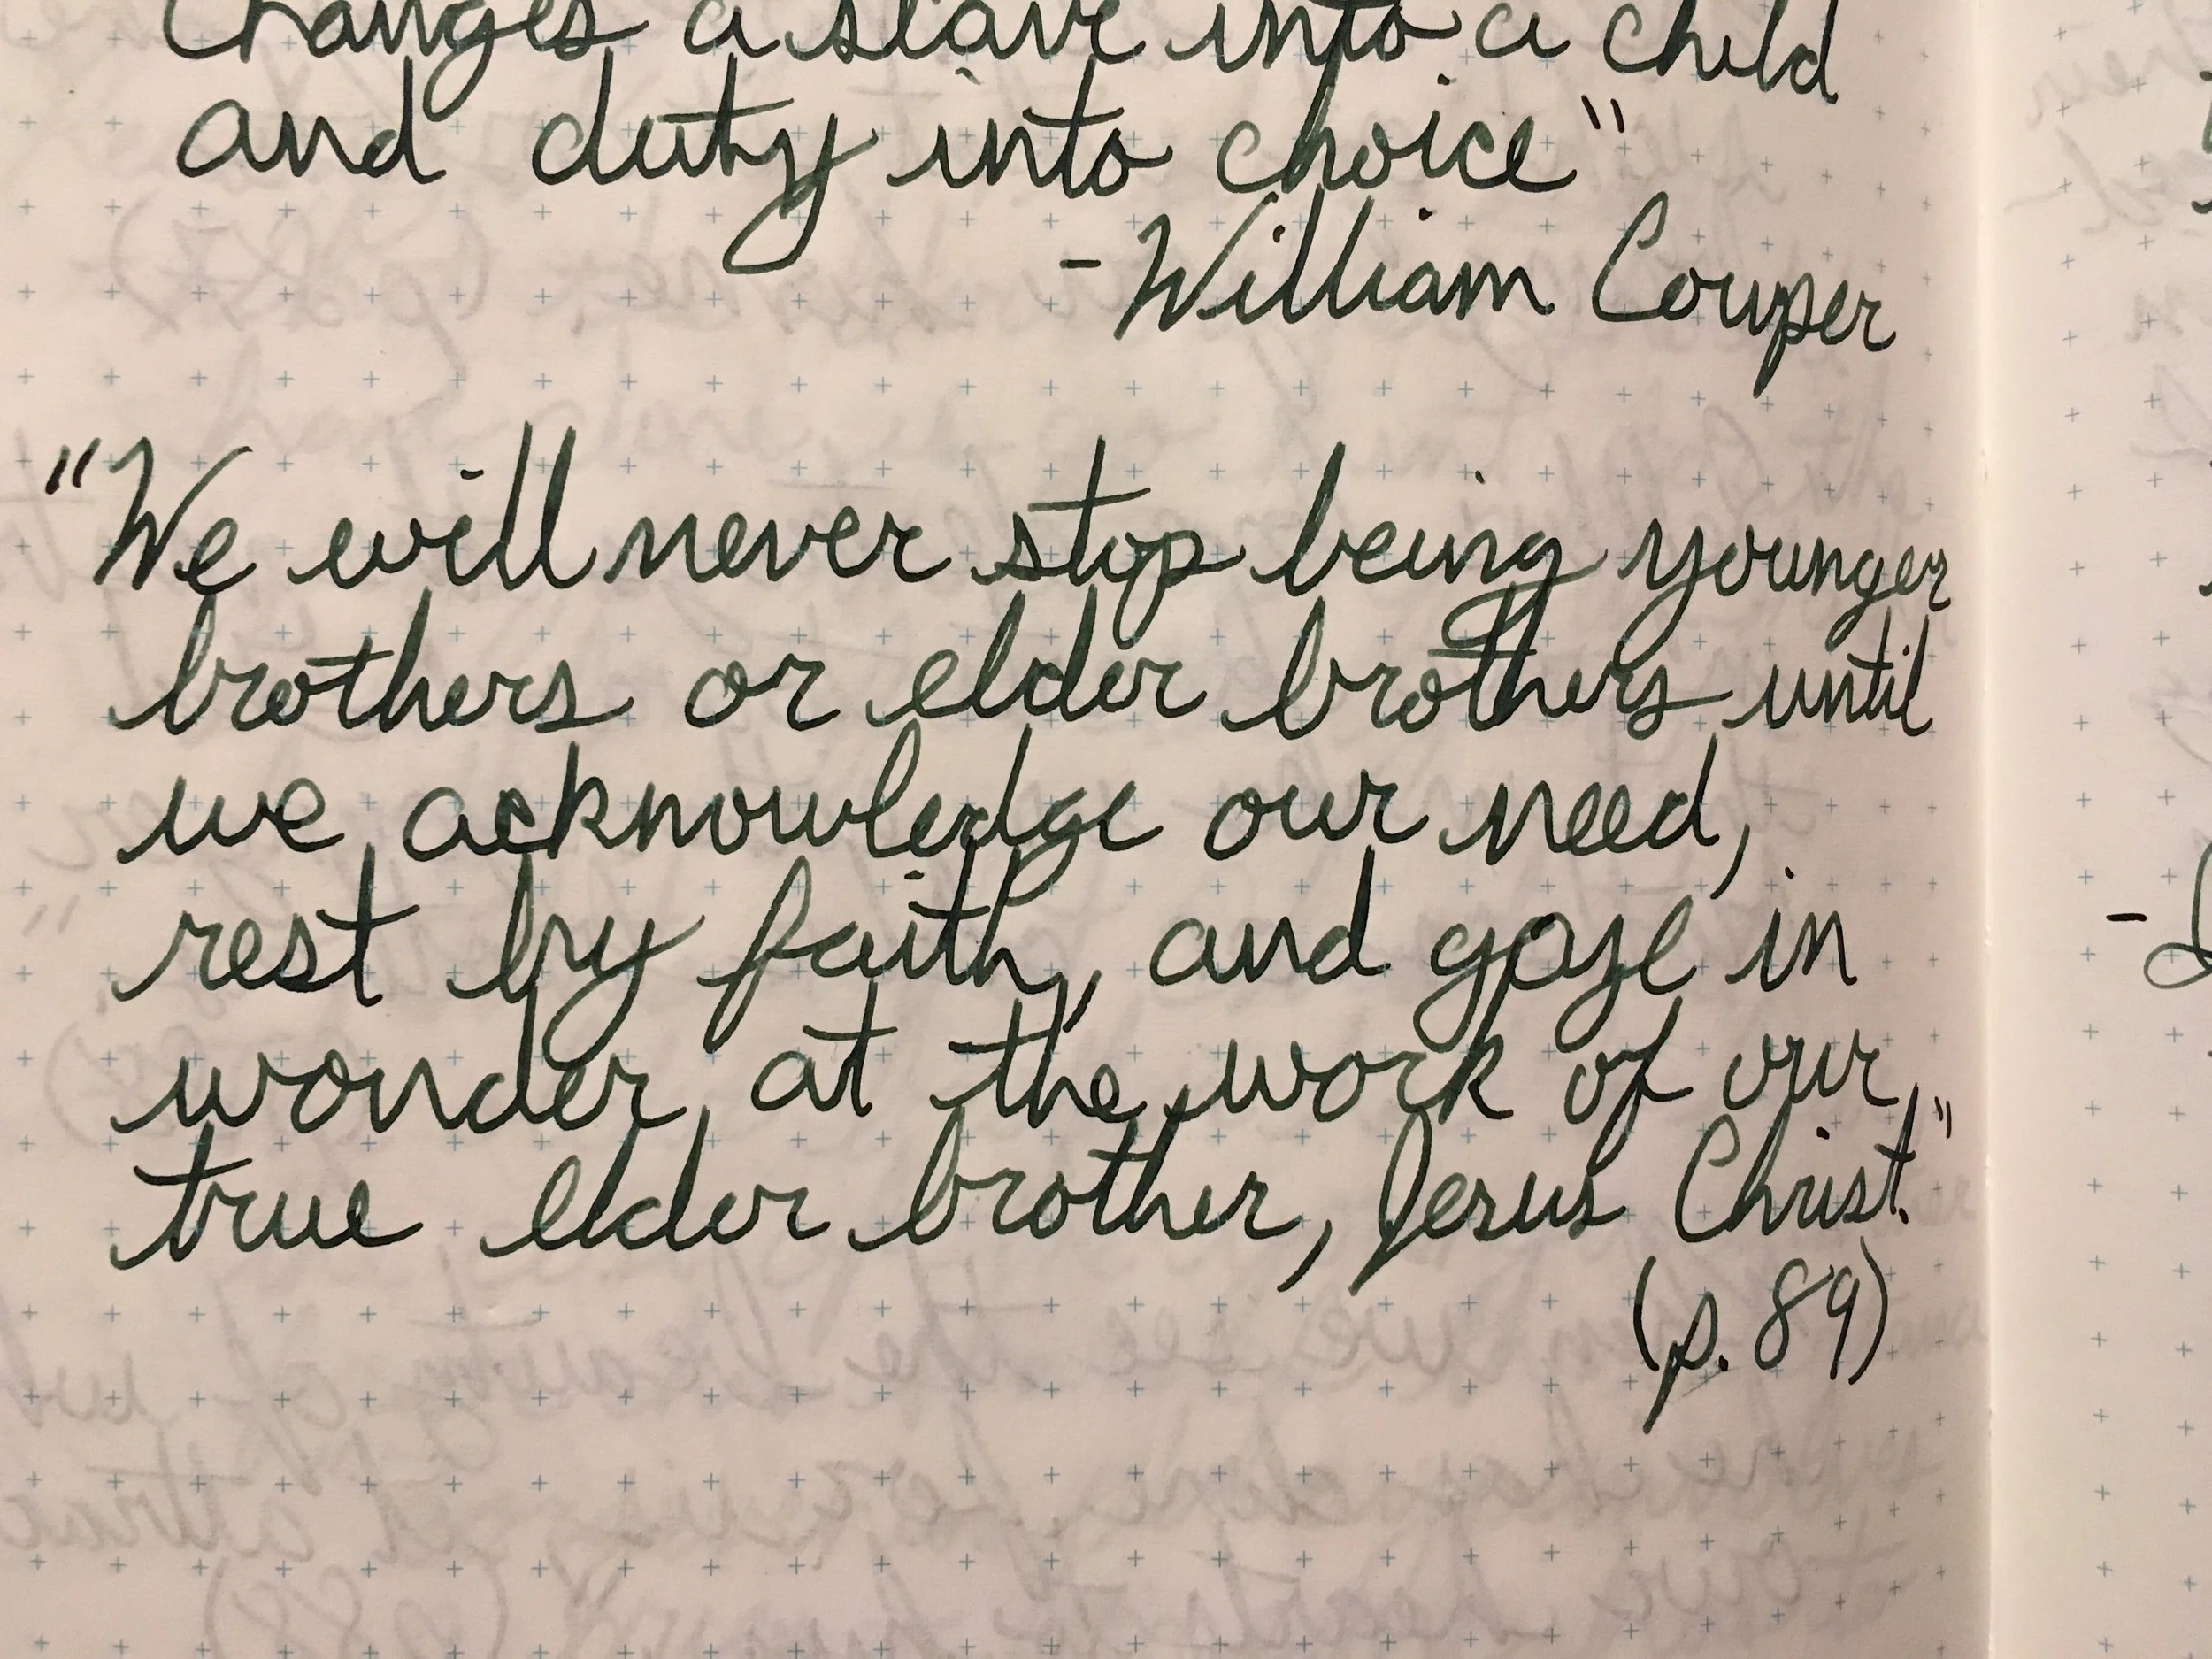 Changes a slave into a child
and duty into choice"
- William Cowper
"We will never stop being younger
brothers or elder brothers until
we acknowledge our need,
rest by faith, and gaze in
wonder at the work of our
true elder brother, Jesus Christ."
(p. 89)